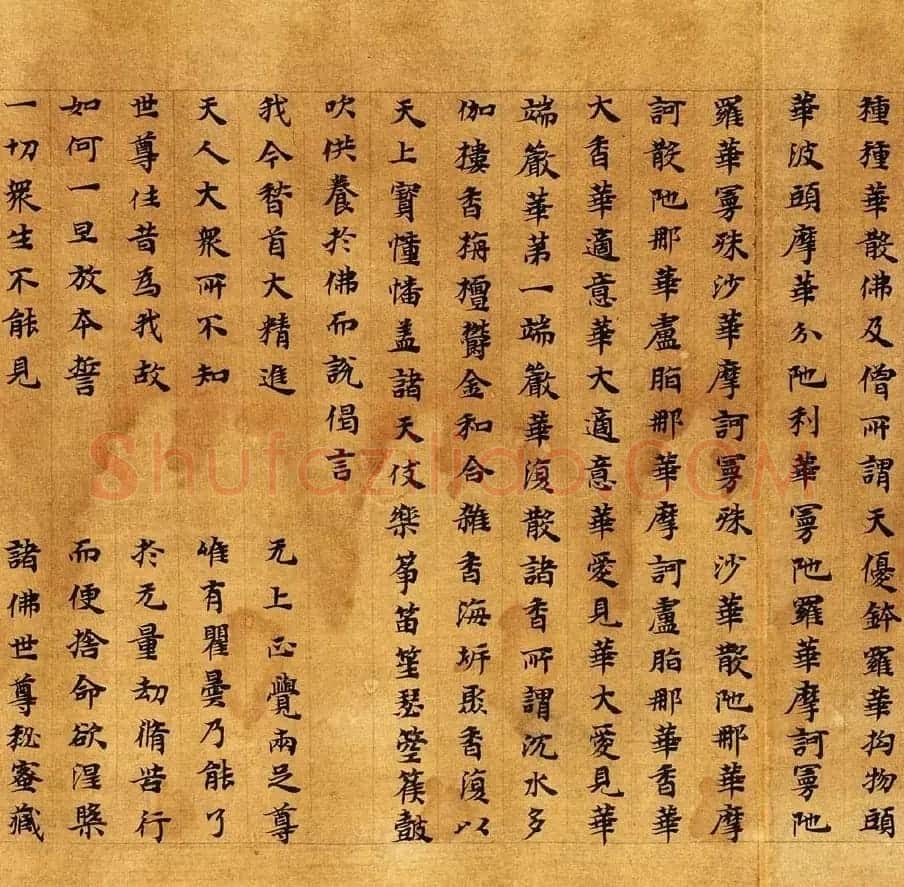 種種華散佛及僧所謂天優鉢羅華拘物頭
華波頭摩華分陁利華曼陁羅華摩訶曼陁
羅華曼殊沙華摩訶曼殊沙華散陁那華摩
訶散陁那華盧脂那華摩訶盧脂那華香華
大香華適意華大適意華愛見華大愛見華
端嚴華第一端嚴華復散諸香所謂沉水多
伽樓香栴檀欝金和合雜香海岸聚香復以
天上寶幢幡盖諸天伎樂箏笛笙瑟箜篌鼓
吹供養於佛而說偈言
我今稽首大精進 无上正覺兩足尊
天人大衆所不知 唯有瞿曇乃能了
世尊往昔為我故 於无量劫脩苦行
如何一旦放本誓 而便捨命欲涅槃
一切衆生不能見 諸佛世尊秘蜜藏
Shufaziliao.COM